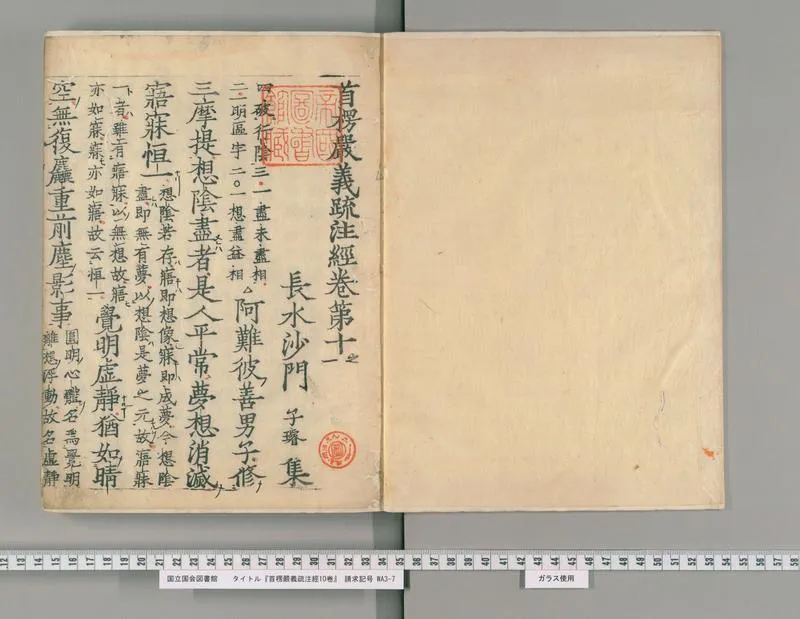 首楞嚴義疏注經卷第十之一
長水沙門 子璿 集
四破行陰三一盡未盡相
二二明區宇二〇一想盡益相
△阿難彼善男子修
三摩提想陰盡者是人平常夢想消滅
寤寐恒一
想陰若存寤即想像寐即成夢今想陰
盡即無有夢以想陰是夢之元故寤寐
一者雖有寤寐以無想故寤
亦如寐寐亦如寤故云恒一
覺明虛靜猶如晴
空無復麤重前塵影事
圓明心體名為覺明
離想浮動故名虛靜
帝國圖書館藏
国立国会図書館 タイトル『首楞嚴義疏注經10巻』 請求記号 WA3-7
ガラス使用